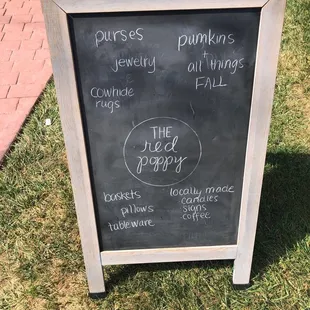 purses
jewelry
cowhide
rugs
pumkins
+
all things
FALL
THE
red
poppy
baskets
pillows
tableware
locally made
candles
signs
coffee